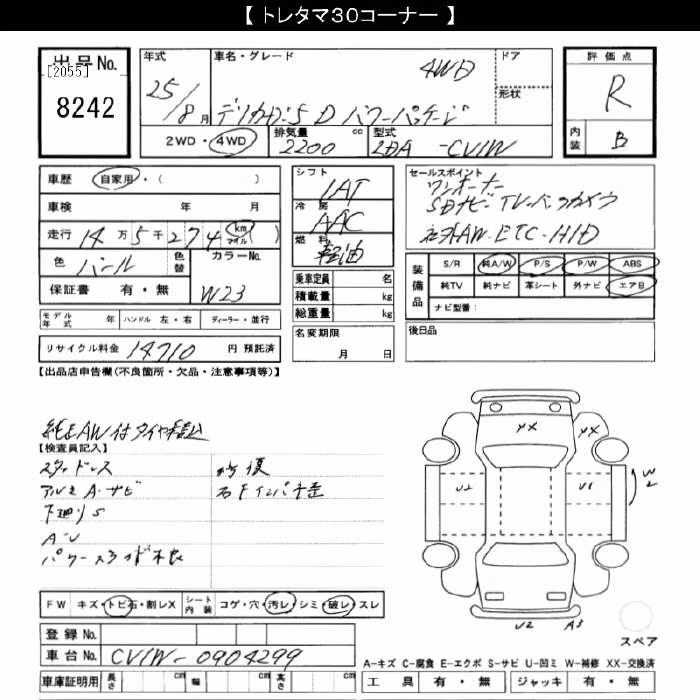 【 トレタマ30コーナー 】
出品No.
[2055]
8242
年式
25/8月
車名・グレード
4WD
デリカD:5 D パワーパッケージ
ドア
形状
評価点
R
内装
B
2WD・4WD
排気量 cc
2200
型式
LDA -CV1W
車歴 自家用・( )
車検 年 月
走行 14万5千274 km マイル ( )
色 パール 色替 カラーNo.
W23
保証書 有・無
シフト
IAT
冷房
AAC
燃料
軽油
乗車定員 名
積載量 kg
総重量 kg
セールスポイント
ワンオーナー
SDナビ・TV・バックカメラ
社外AW・ETC・HID
装備品
S/R 純A/W P/S P/W ABS
純TV 純ナビ 革シート 外ナビ エアB
ナビ型番:
モデル年式 年 ハンドル 左・右 ディーラー・並行
名変期限
月 日
後日品
リサイクル料金 14710 円 預託済
【出品店申告欄(不良箇所・欠品・注意事項等)】
純正AW付タイヤ積込
【検査員記入】
スタッドレス
アルミA・サビ
下廻りS
A・U
パワースライド不良
修復
右Fインパネ歪
XX
XX
U2
U1
W2
U2 A3
スペア
FW キズ・トビ石・割レX シート内装 コゲ・穴・汚レ・シミ・破レ・スレ
登録No.
車台No. CV1W-0904299
車庫証明用 長さ cm 幅 cm 高さ cm
A-キズ C-腐食 E-エクボ S-サビ U-凹ミ W-補修 XX-交換済
工具 有・無 ジャッキ 有・無